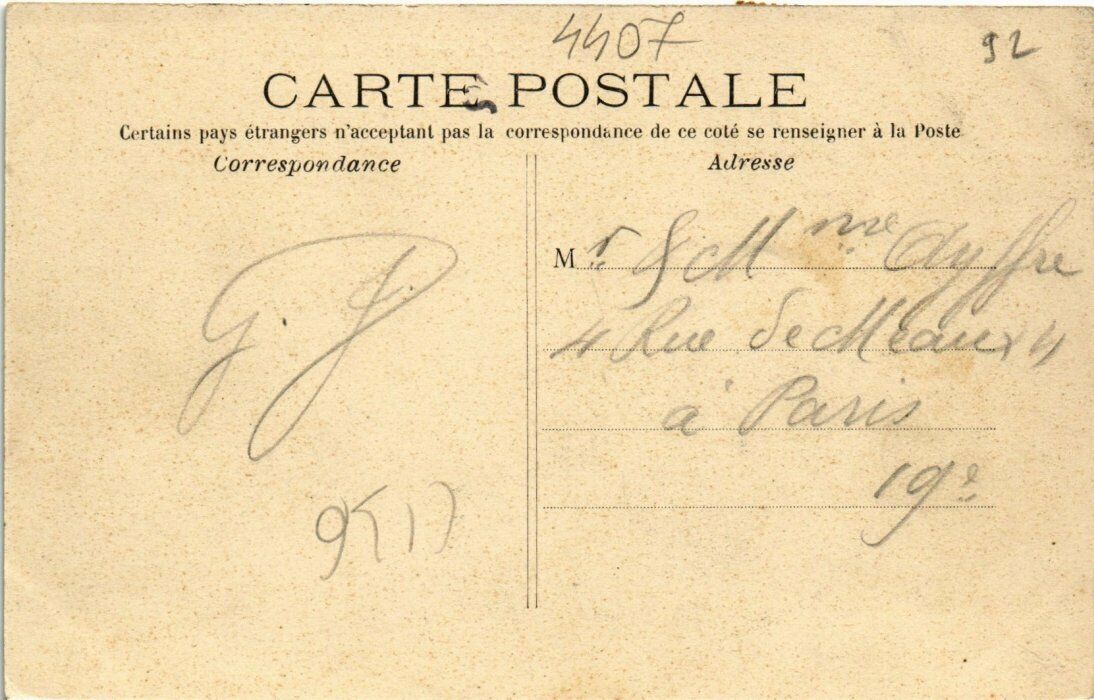 4407
92
CARTE POSTALE
Certains pays étrangers n'acceptant pas la correspondance de ce coté se renseigner à la Poste
Correspondance
G. J.
9517
Adresse
Mr & Mme Ayffre
4 Rue de Meaux 4
à Paris
19e